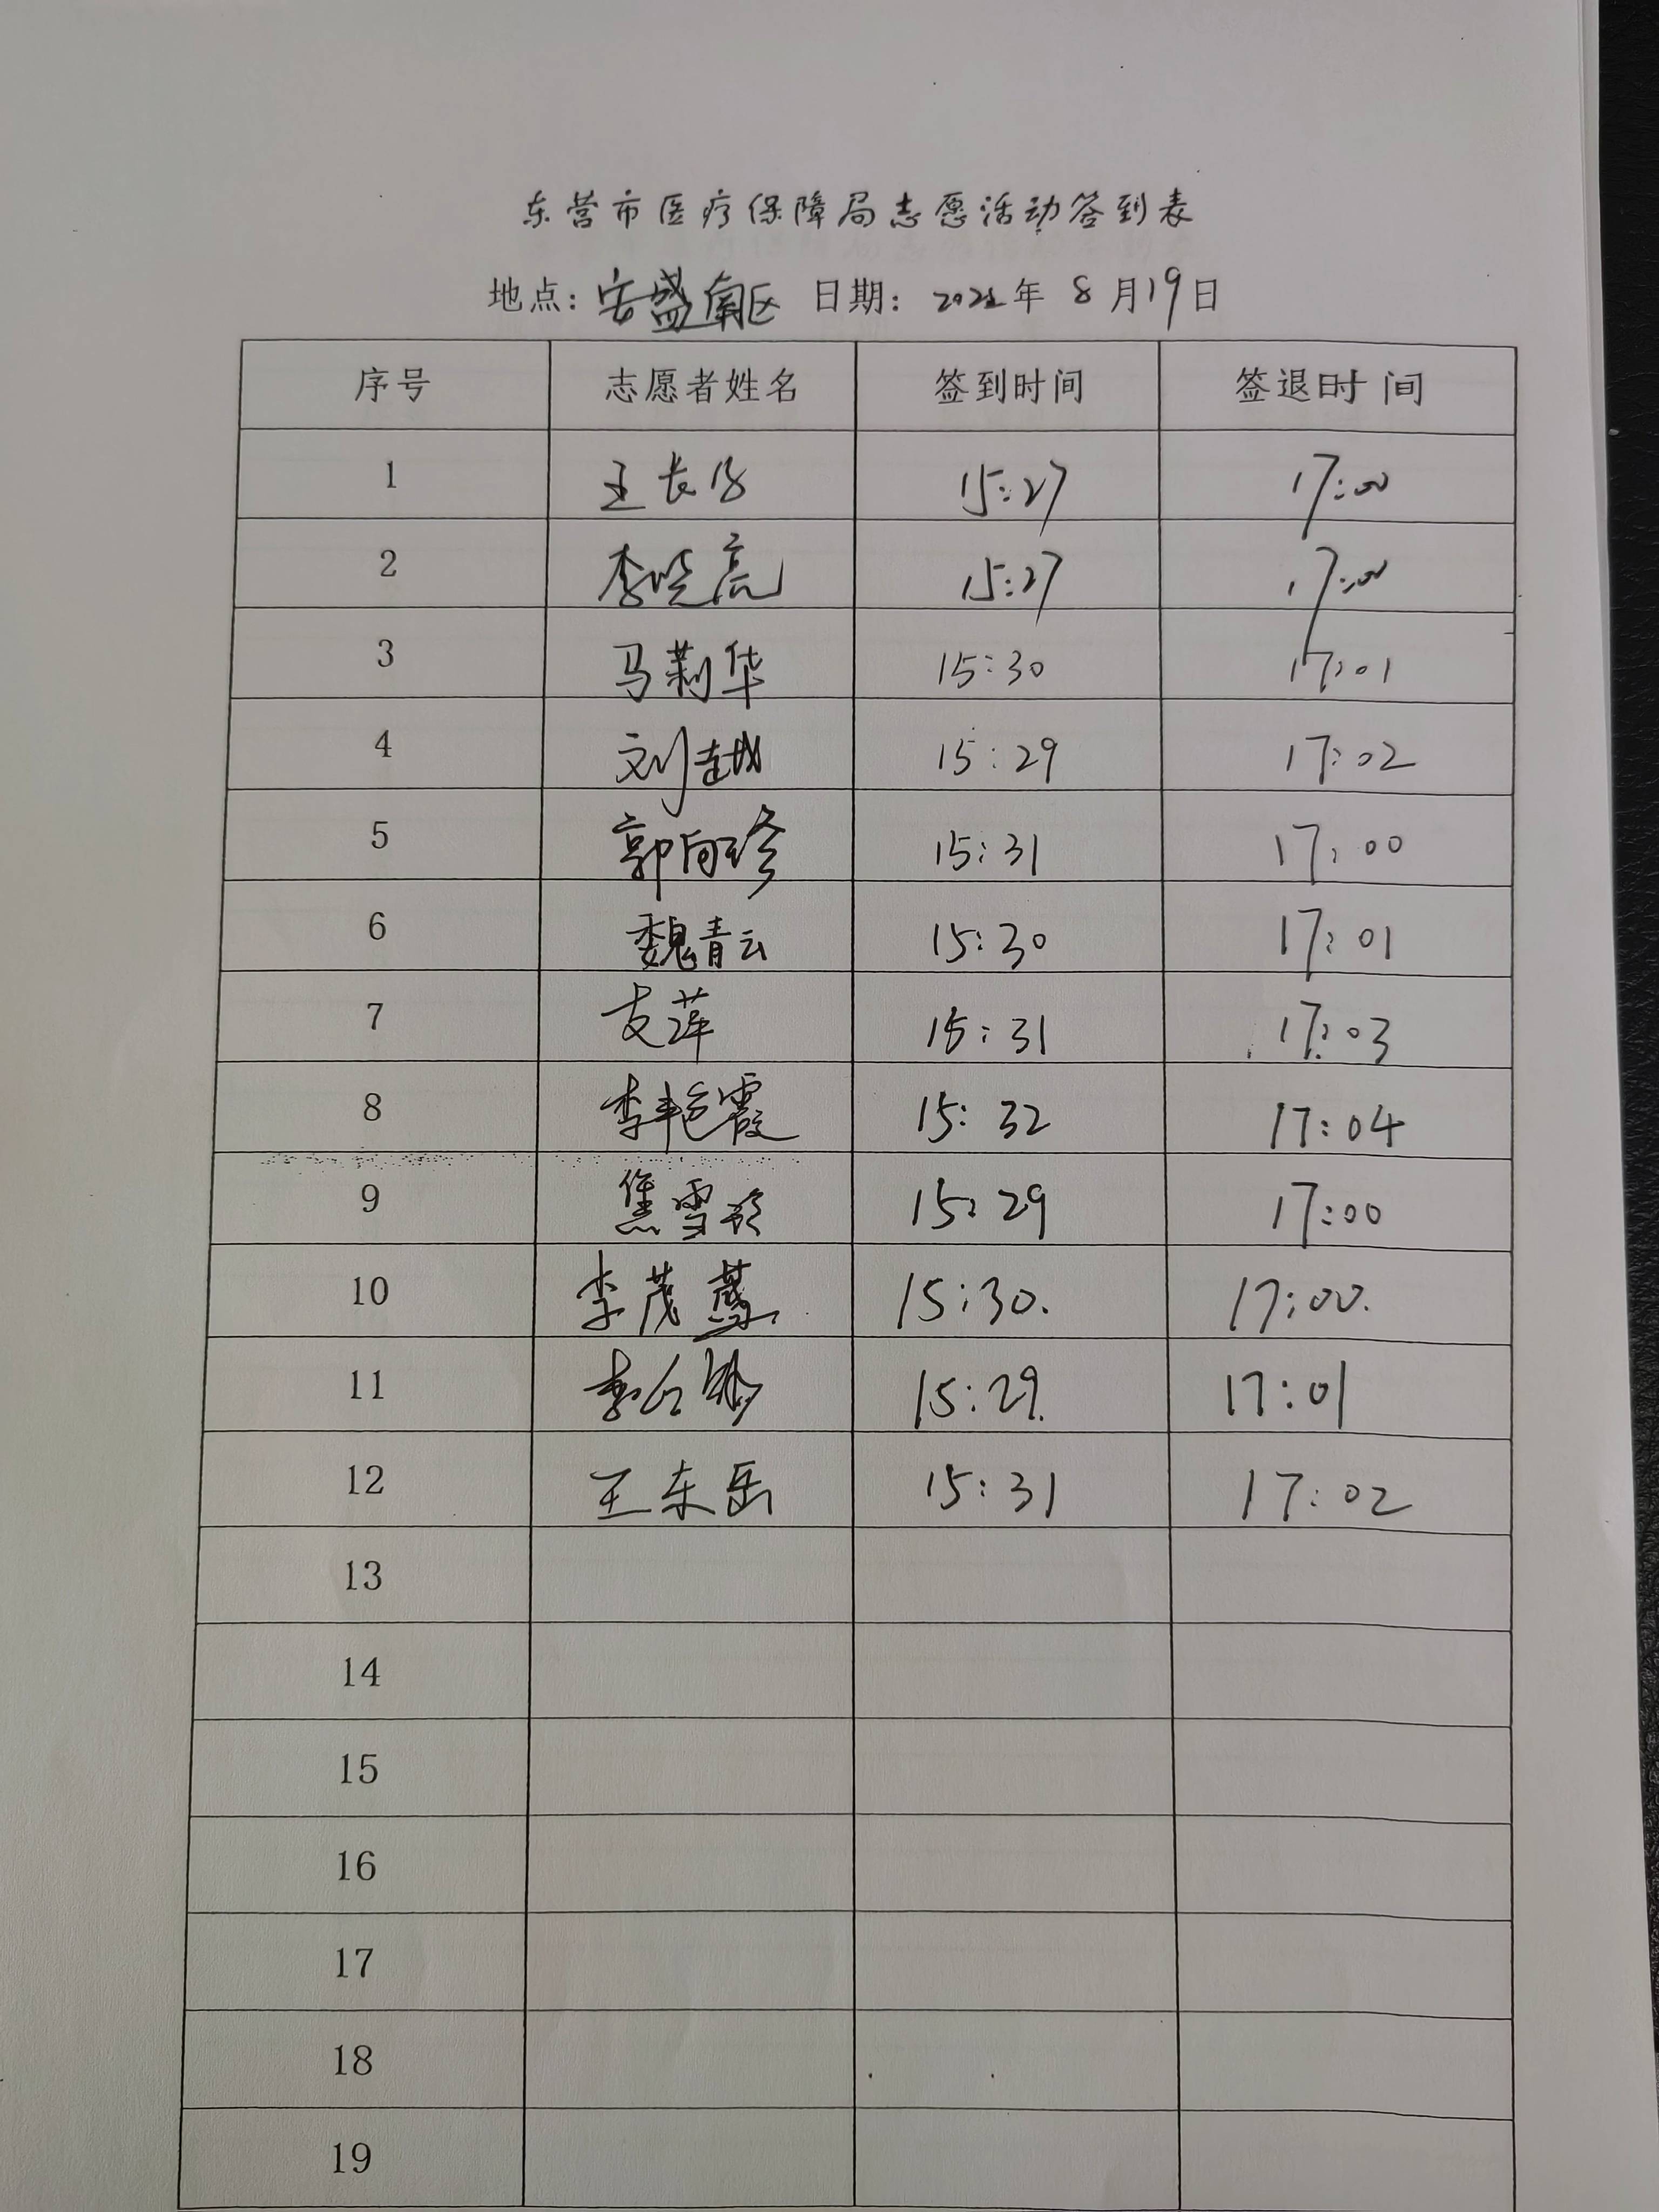 东营市医疗保障局志愿活动签到表
地点：安盛南区 日期：2022年 8月19日
序号 志愿者姓名 签到时间 签退时间
1 王长 15:27 17:00
2 李晓亮 15:27 17:00
3 马莉华 15:30 17:01
4 刘越 15:29 17:02
5 郭向珍 15:31 17:00
6 魏青云 15:30 17:01
7 支萍 15:31 17:03
8 李艳霞 15:32 17:04
9 焦雪玲 15:29 17:00
10 李茂燕 15:30. 17:00.
11 李 15:29. 17:01
12 王东岳 15:31 17:02
13
14
15
16
17
18
19